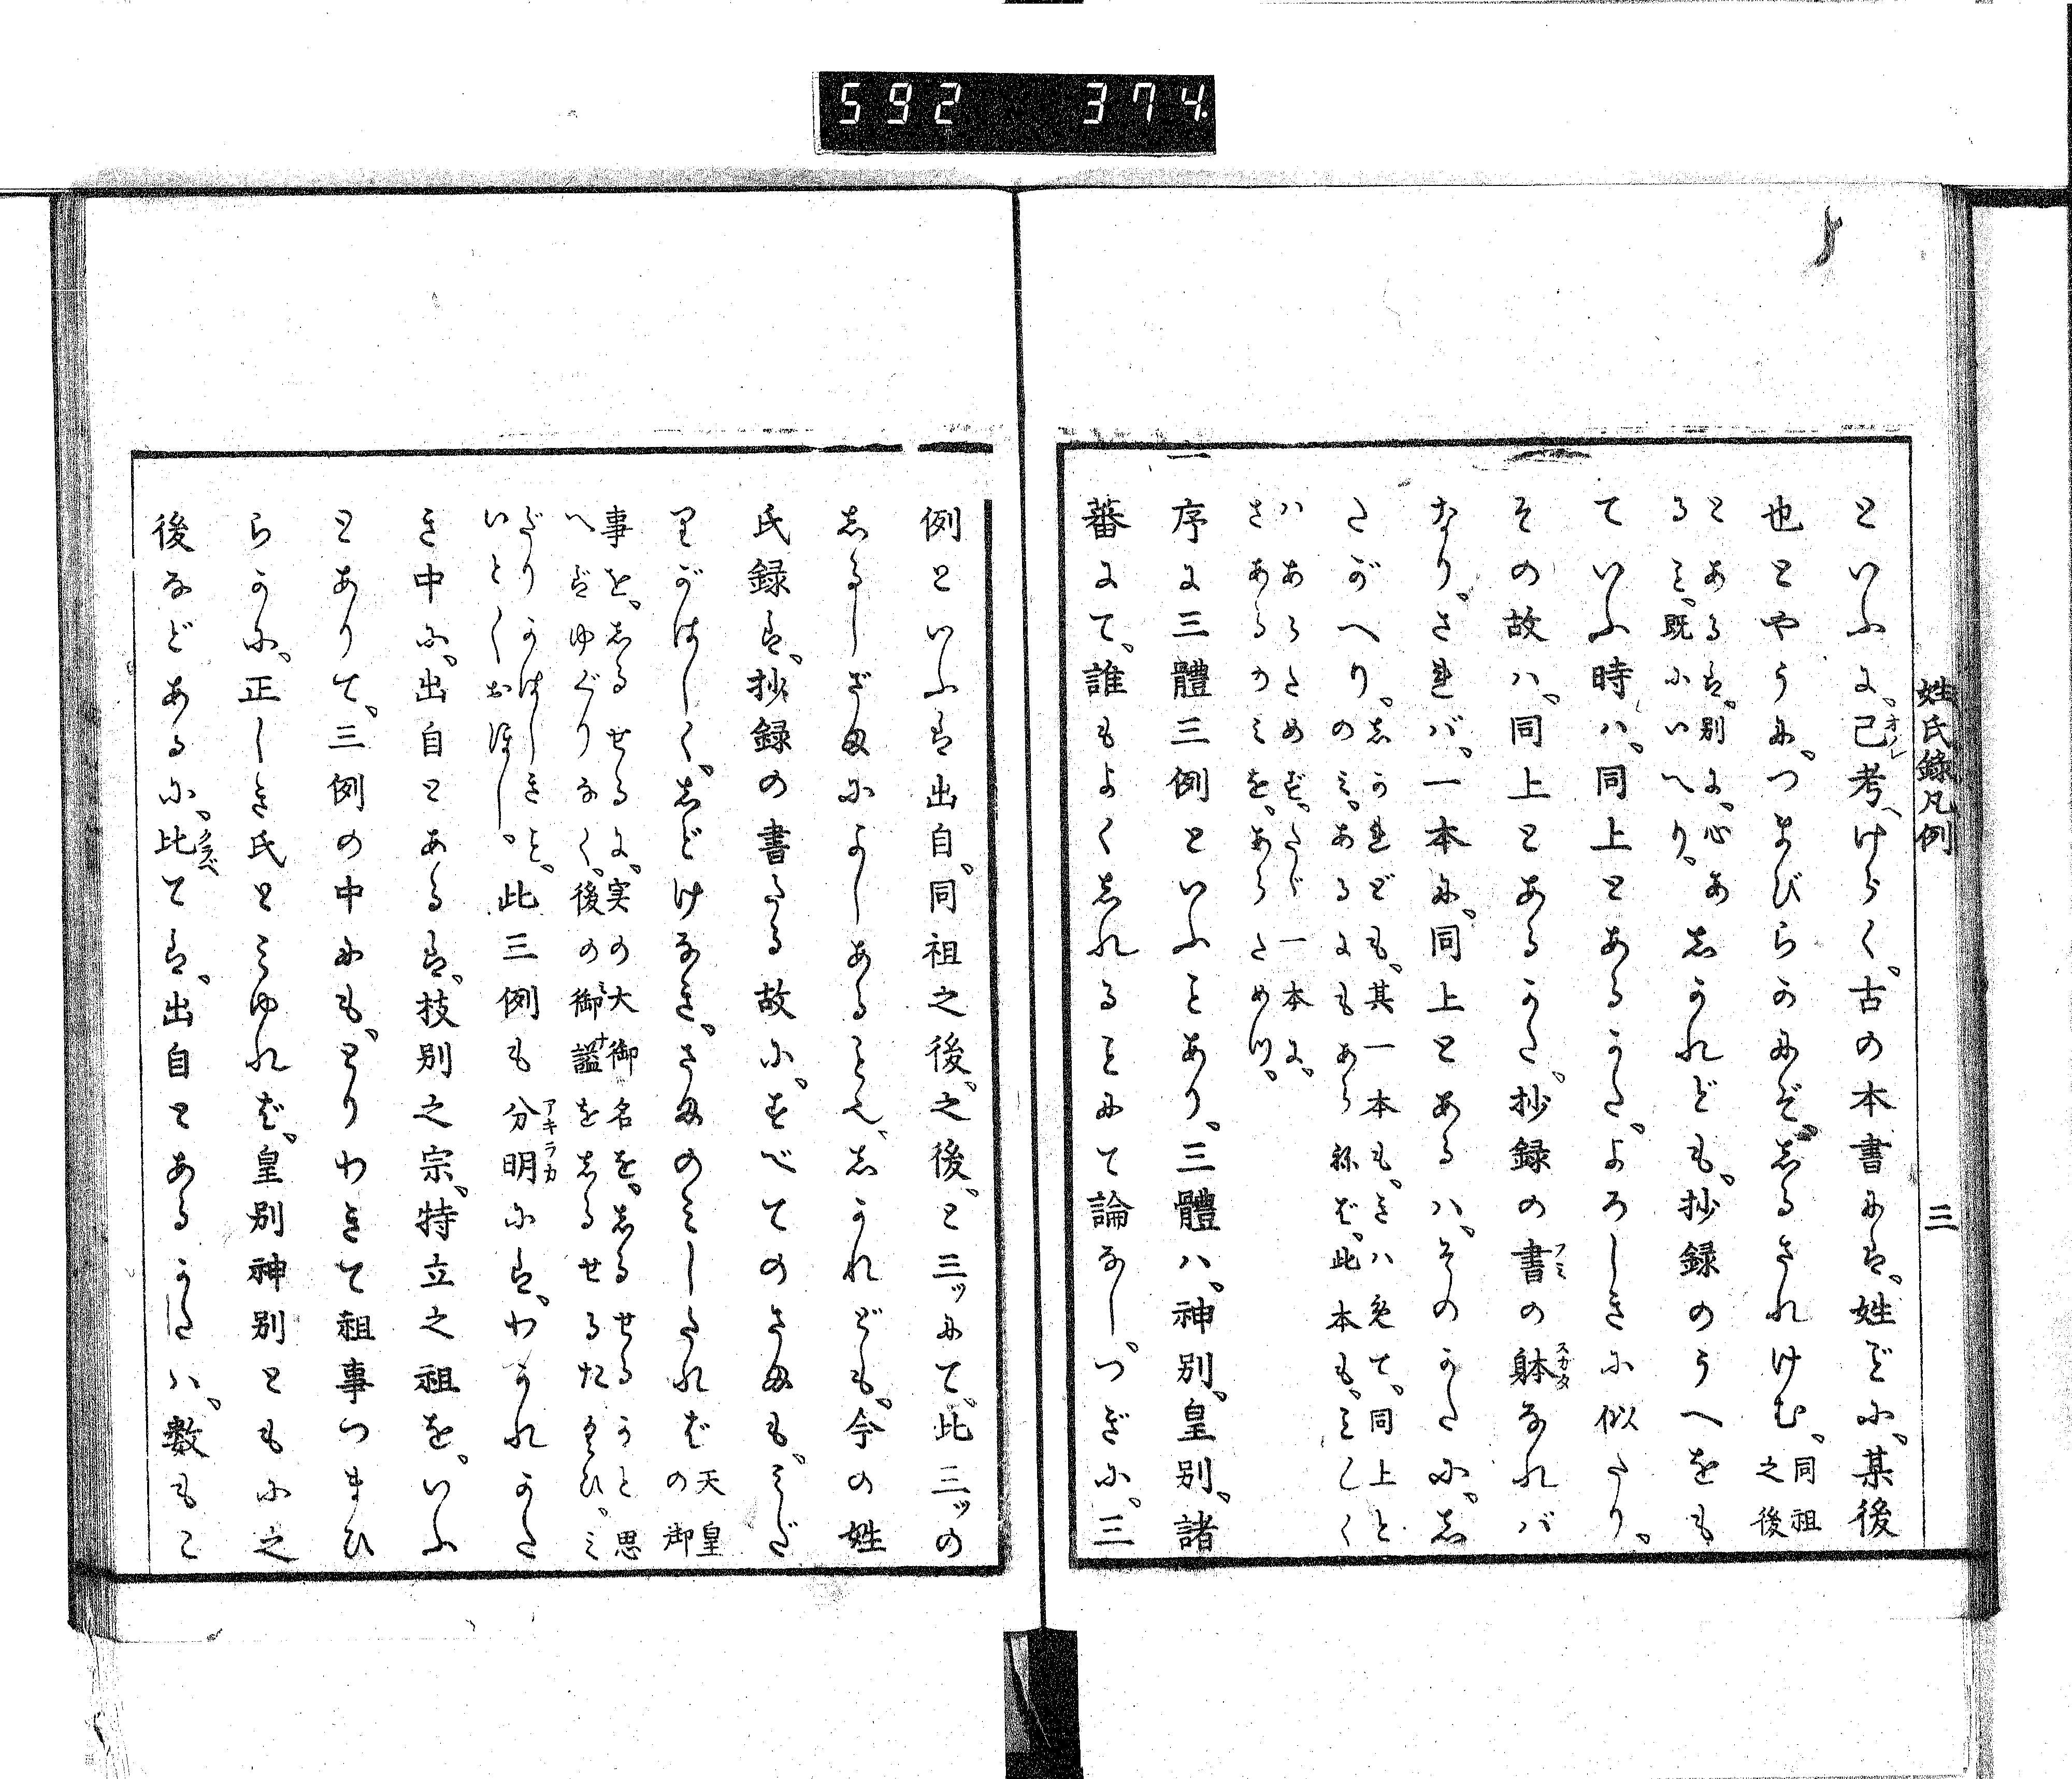 592 374.
姓氏錄凡例 三
といふに、己考、けらく、古の本書には、姓どに、某後
也とやうに、つまびらかにぞ、しるされけむ、同祖之後
とあるは、別に、心あ
るこ、既にいへり、
しかれども、抄録のうへをも
ていふ時ハ、同上とあるかた、よろしきに似たり、
その故ハ、同上とあるかた、抄録の書の躰なれバ
なり、されバ、一本に、同上とあるハ、そのかたに、し
たがへり、
しかれども、其一本も、きハ免て、同上と
のミ、あるにもあらねば、此本も、ミしく
ハあらためず、たゞ一本に、
さあるのミを、あらためつ、
一 序に三體三例といふことあり、三體ハ、神別、皇別、諸
蕃にて、誰もよくしれることにて論なし、つぎに、三
例といふは出自、同祖之後、之後、と三ッにて、此三ッの
しるしざまによしあることゝ、しかれども、今の姓
氏録は、抄録の書たる故に、すべてのさまも、ミだ
りがはしく、しどけなき、さまのミしたれば
天皇
の御
事を、しるせるに、実の大御名を、しるせるかと思
へばゆくりなく、後の御謚をしるせるたぐひ、ミ
だりかはしきこと、
いとくおほし、
此三例も分明には、わかれかた
き中に、出自とあるは、枝別之宗、特立之祖を、いふ
とありて、三例の中にも、とりわきて祖事つまひ
らかに、正しき氏とミゆれば、皇別神別ともに之
後などあるに、比ては、出自とあるかたハ、数もこ